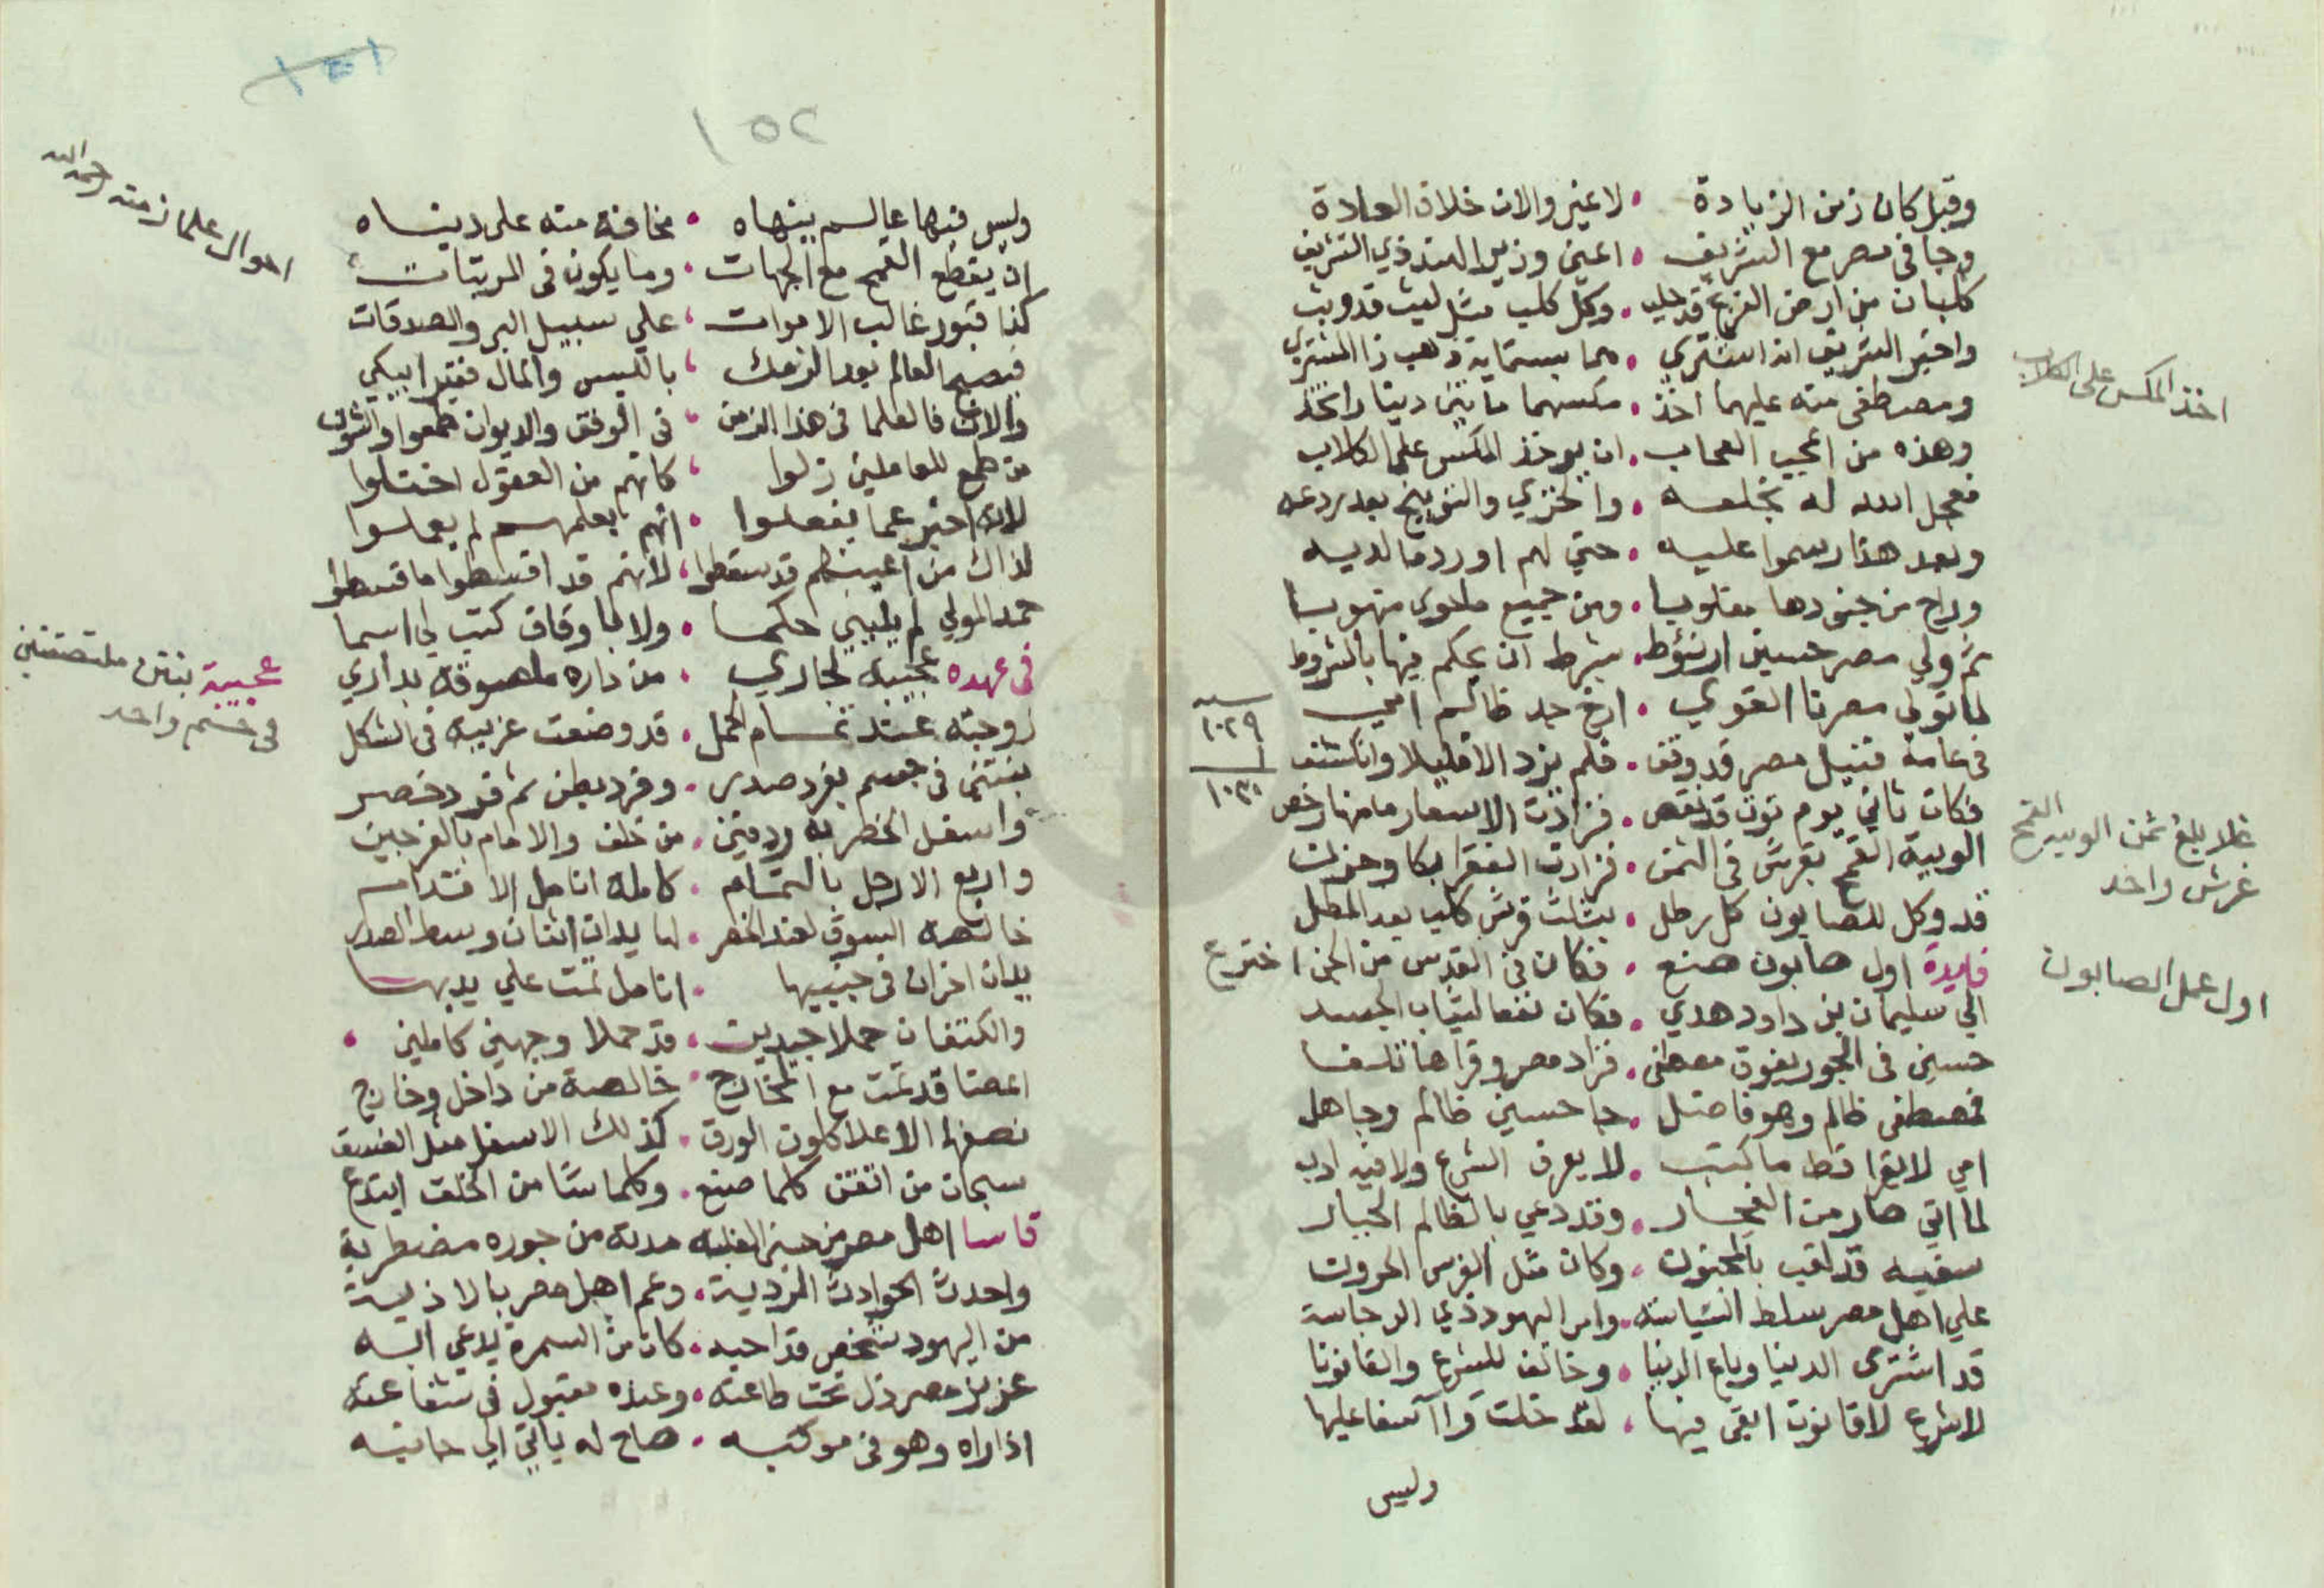 وقبل كان زمن الزيادة • لا غير والان خلاف العادة
وجا في مصر مع الشريف • اعني وزير الهند ذي التشريف
كلبان من ارض الفرنج قد جلب • وكل كلب مثل ليث قد وثب
واخبر الشريف انه اشتري • هما بستماية ذهب ذا المشتري
ومصطفى منه عليهما اخذ • مكسهما مايتين دينارا نخذ
وهذه من اعجب العجاب • ان يوخذ المكس على الكلاب
فعجل الله له بخلعه • والخزي والتوبيخ بعد ردعه
وبعد هذا رسموا عليه • حتي لهم اورد ما لديه
وراح من جنودها مغلوبا • ومن جميع ما حوى منهوبا
ثم ولي مصر حسين ارنؤط • بشرط ان يحكم فيها بالشروط
لما تولي مصرنا القوي • ارخ جد ظالم امي
سنه
١٠٢٩
١
١٠٣٠
في عامه فنيل مصر قد وقف • فلم يزد الا قليلا وانكشف
فكان ثاني يوم توت قد نقص • فزادت الاسعار ما منها رخص
الويبة القمح بقرش في الثمن • فزادت الفقرا بكا وحزن
قد وكل للصابون كل رطل • بثلث قرش كلب بعد المطل
فايدة اول صابون صنع • فكان في القدس من الجن اخترع
الي سليمان بن داود هدي • فكان نفعا لثياب الجسد
حسين في الجور يفوق مصطفى • فزاد مصر وقراها تلفا
فمصطفى ظالم وهو فاضل • جا حسين ظالم وجاهل
امي لا يقرا قط ما كتب • لا يعرف الشرع ولا فيه ادب
لما اتي صار من الفجار • وقد دعي بالظالم الجبار
سفيه قد لقب بالمجنون • وكان مثل الفرس الحرون
علي اهل مصر سلط الشياسنه • وامر اليهود ذي الرجاسة
قد اشترى الدنيا وباع الدينا • وخالف للشرع والقانونا
لا شرع لا قانون ابقى فيها • لقد خلت وا اسفا عليها
وليس
اخذ المكس على الكلاب
غلا بلغ ثمن الويبة القمح
غرش واحد
اول عمل الصابون
١٥٢
وليس فيها عالم ينهاه • مخافة منه على دنياه
ان يقطع القمح مع الجهات • وما يكون في المرتبات
كذا قبور غالب الاموات • علي سبيل البر والصدقات
فيصبح العالم بعد الزمك • بالكيس والمال فقيرا يبكي
والان فالعلما في هذا الزمن • في الوفق والديوان طمعوا والشون
من طمع للعاملين زلوا • كانهم من العقول اختلوا
لانه اخبر عما يفعلوا • انهم بعلمهم لم يعملوا
لذاك من اعينهم قد سقطوا • لانهم قد اقسطوا ما قسطوا
حمد المولي لم يليني حكما • ولا لاوقاف كتب لي اسما
في عهده عجيبة لجاري • من داره ملصوقة بداري
زوجته عند تمام الحمل • قد وضعت غريبة في الشكل
بنتين في جسم بفرد صدر • وفرد بطن ثم فرد خصر
واسفل الخصر به ردفين • من خلف والامام بالفرجين
واربع الارجل بالتمام • كامله انامل الاقدام
خالصة السوق لعند الخصر • لها يدان اثنان وسط الصدر
يدان اخران في جنبيها • انامل تمت علي يديها
والكتفان حملا جيدين • قد حملا وجهين كاملين •
اعضا قد تمت مع المخارج • خالصة من داخل وخارج
نصفها الاعلا كلون الورق • كذلك الاسفل مثل الغسق
سبحان من اتقن كلما صنع • وكلما شا من الخلق ابتدع
قاسا اهل مصر من حسين الغلبه مدته من جوره مضطربة
واحدث الحوادث المردية • وعم اهل مصر بالاذية
من اليهود شخص قد احبه • كان من السمرة يدعي اليه
عزيز مصر ذل تحت طاعته • وعنده مقبول في شفاعته
اذا راه وهو في موكبه • صاح له ياتي الي جانبه
احوال علما زمنه رحمه الله
عجيبة بنتين ملتصقتين
في جسم واحد